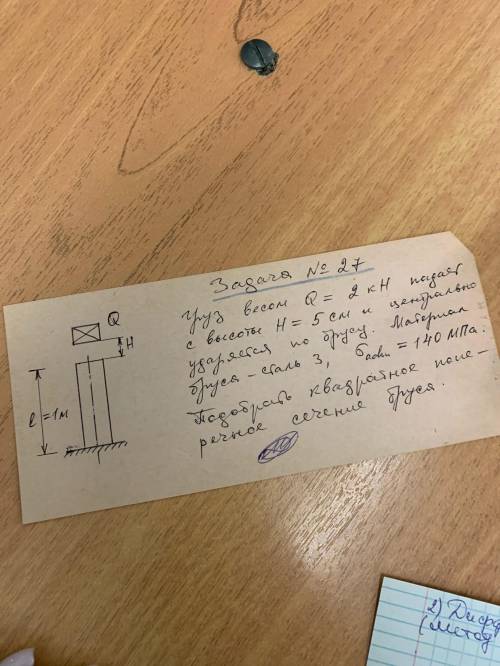 Задача № 27
Груз весом Q = 2 кН падает
с высоты H = 5 см и центрально
ударяется по брусу. Материал
бруса – сталь 3, σadm = 140 МПа.
Подобрать квадратное попе-
речное сечение бруса.
Q
H
l = 1м
2) Дифф
(метод